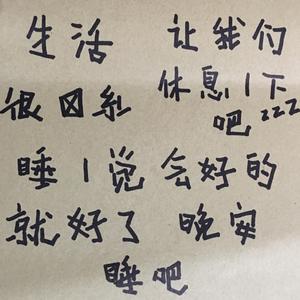 生活
很困系
让我们
休息1下
吧zzz
睡1觉 会好的
就好了 晚安
睡吧